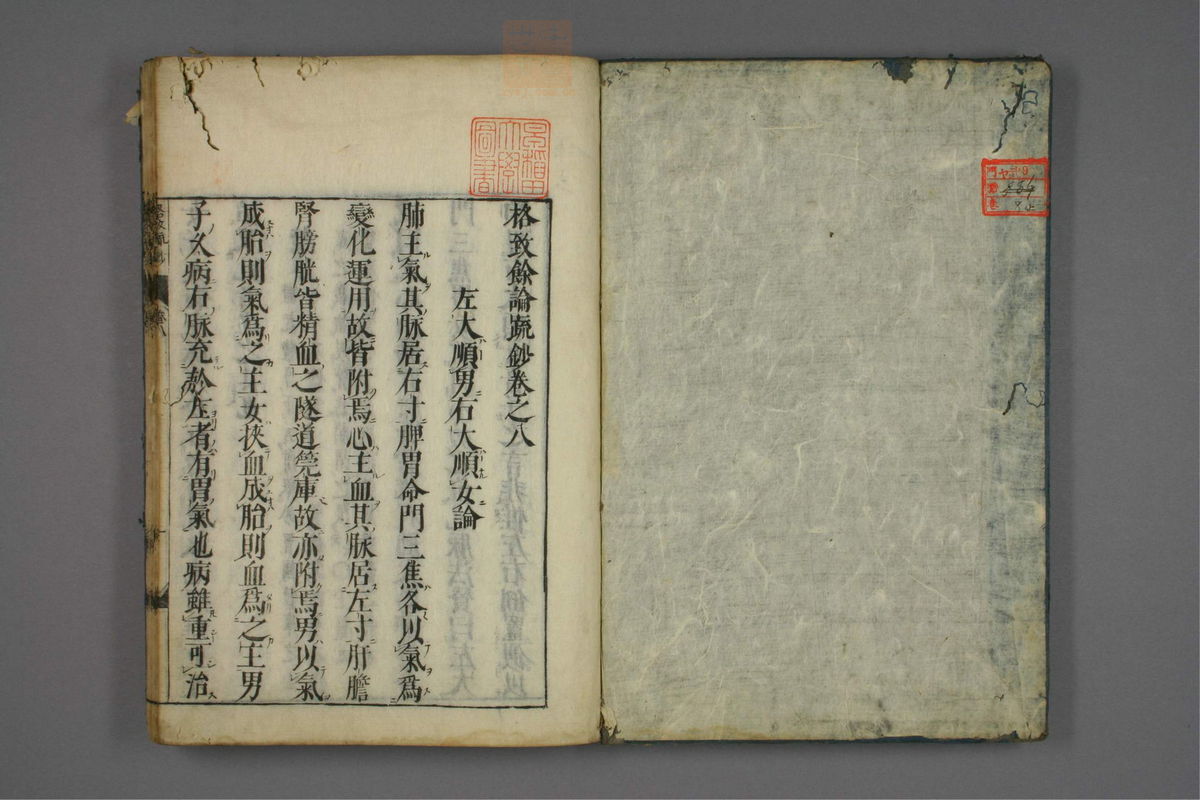 格致餘論疏鈔卷之八
左大順男右大順女論
肺主氣其脉居右寸脾胃命門三焦各以氣爲
變化運用故皆附焉心主血其脉居左寸肝膽
腎膀胱皆精血之隧道筦庫故亦附焉男以氣
成胎則氣爲之主女挾血成胎則血爲之主男
子久病右脉充於左者有胃氣也病雖重可治
早稲田
大學
圖書